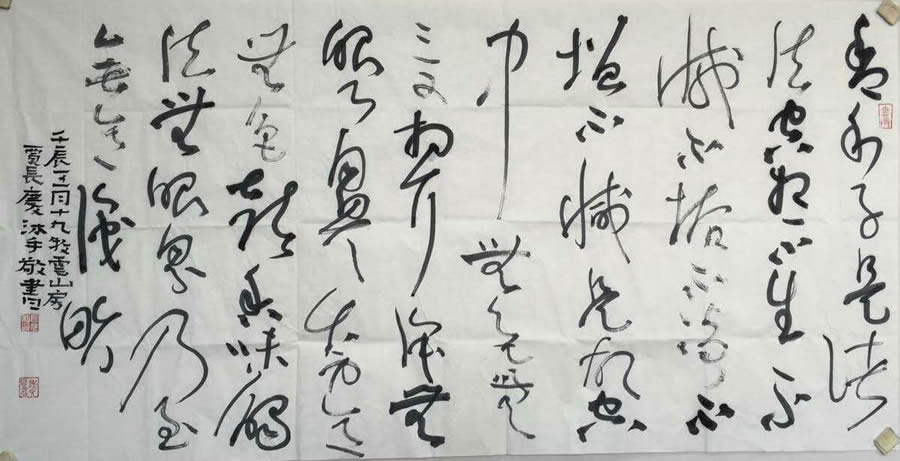 舍利子是诸
法空相不生不
滅不垢不淨不
增不減是故空
中無色無
受想行識無
眼耳鼻舌身意
無色聲香味觸
法無眼界乃至
無意識界
壬辰月十九雲山房
賈長慶沐手敬書